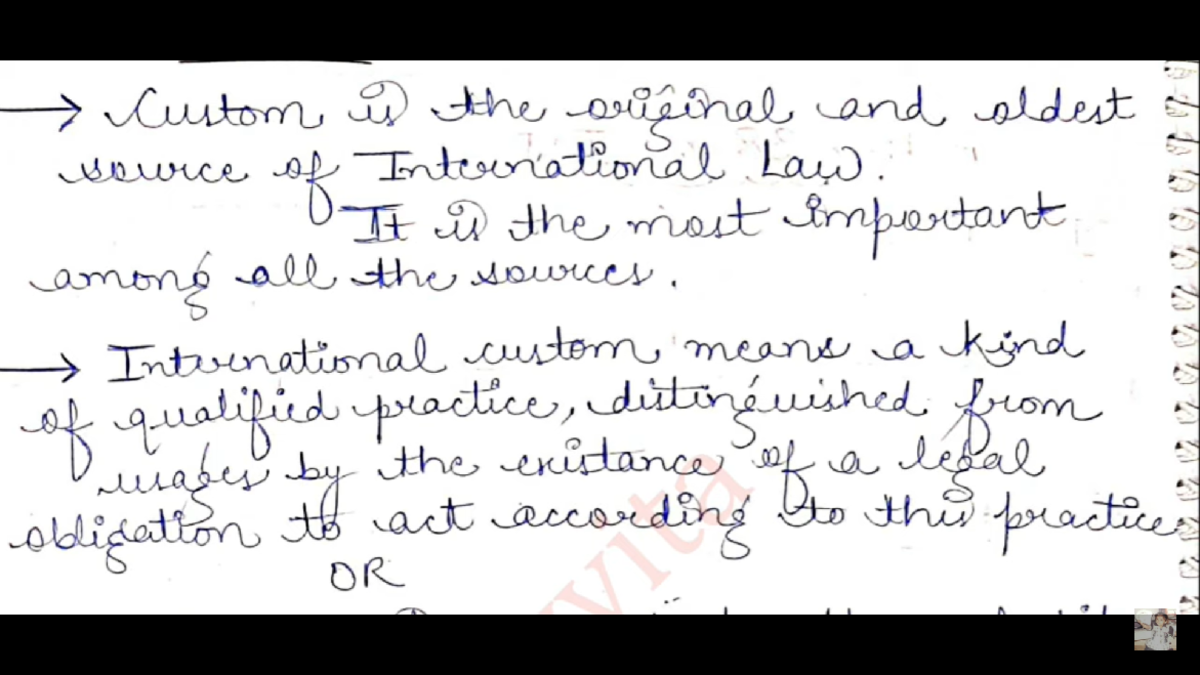 → Custom is the original and oldest
source of International Law.
It is the most important
among all the sources.
→ International custom means a kind
of qualified practice, distinguished from
usages by the existance of a legal
obligation to act according to this practice
OR